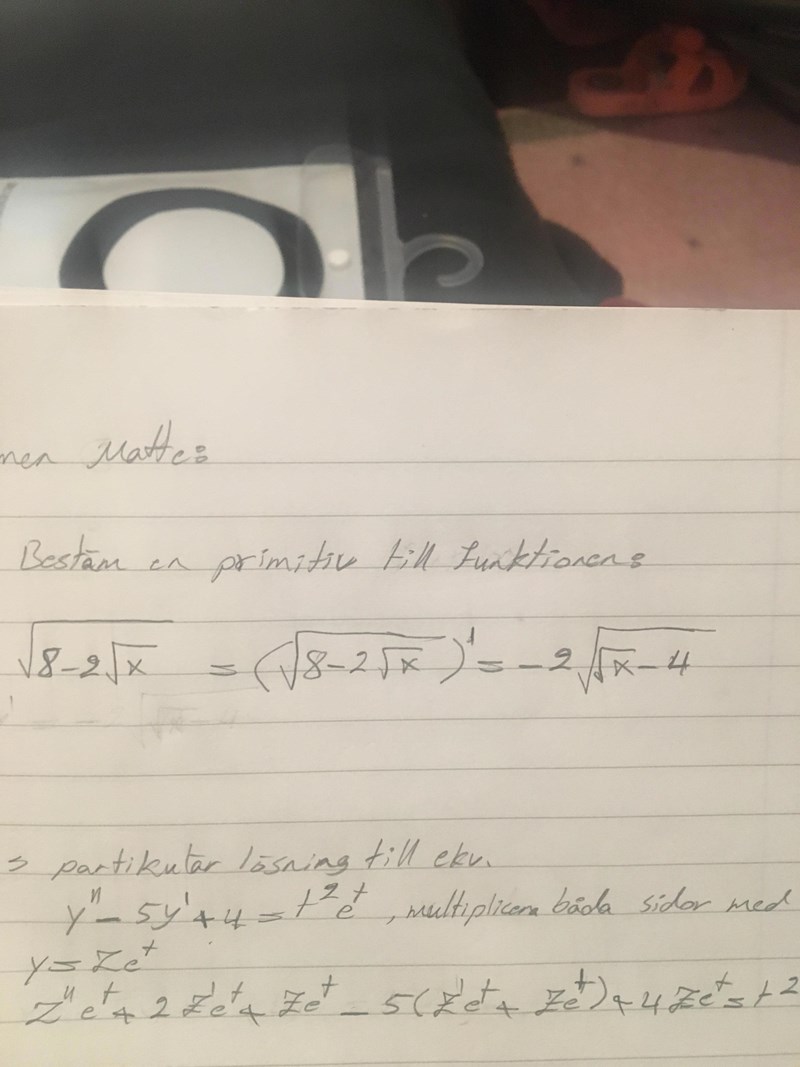 Matte:
Bestäm en primitiv till funktionen:
√(8-2√x) = (√(8-2√x))' = -2√(√x-4)
⇒ partikulär lösning till ekv.
y'' - 5y' + 4 = t²eᵗ, multiplicera båda sidor med
y = zeᵗ
z''eᵗ + 2z'eᵗ + zeᵗ - 5(z'eᵗ + zeᵗ) + 4zeᵗ = t²